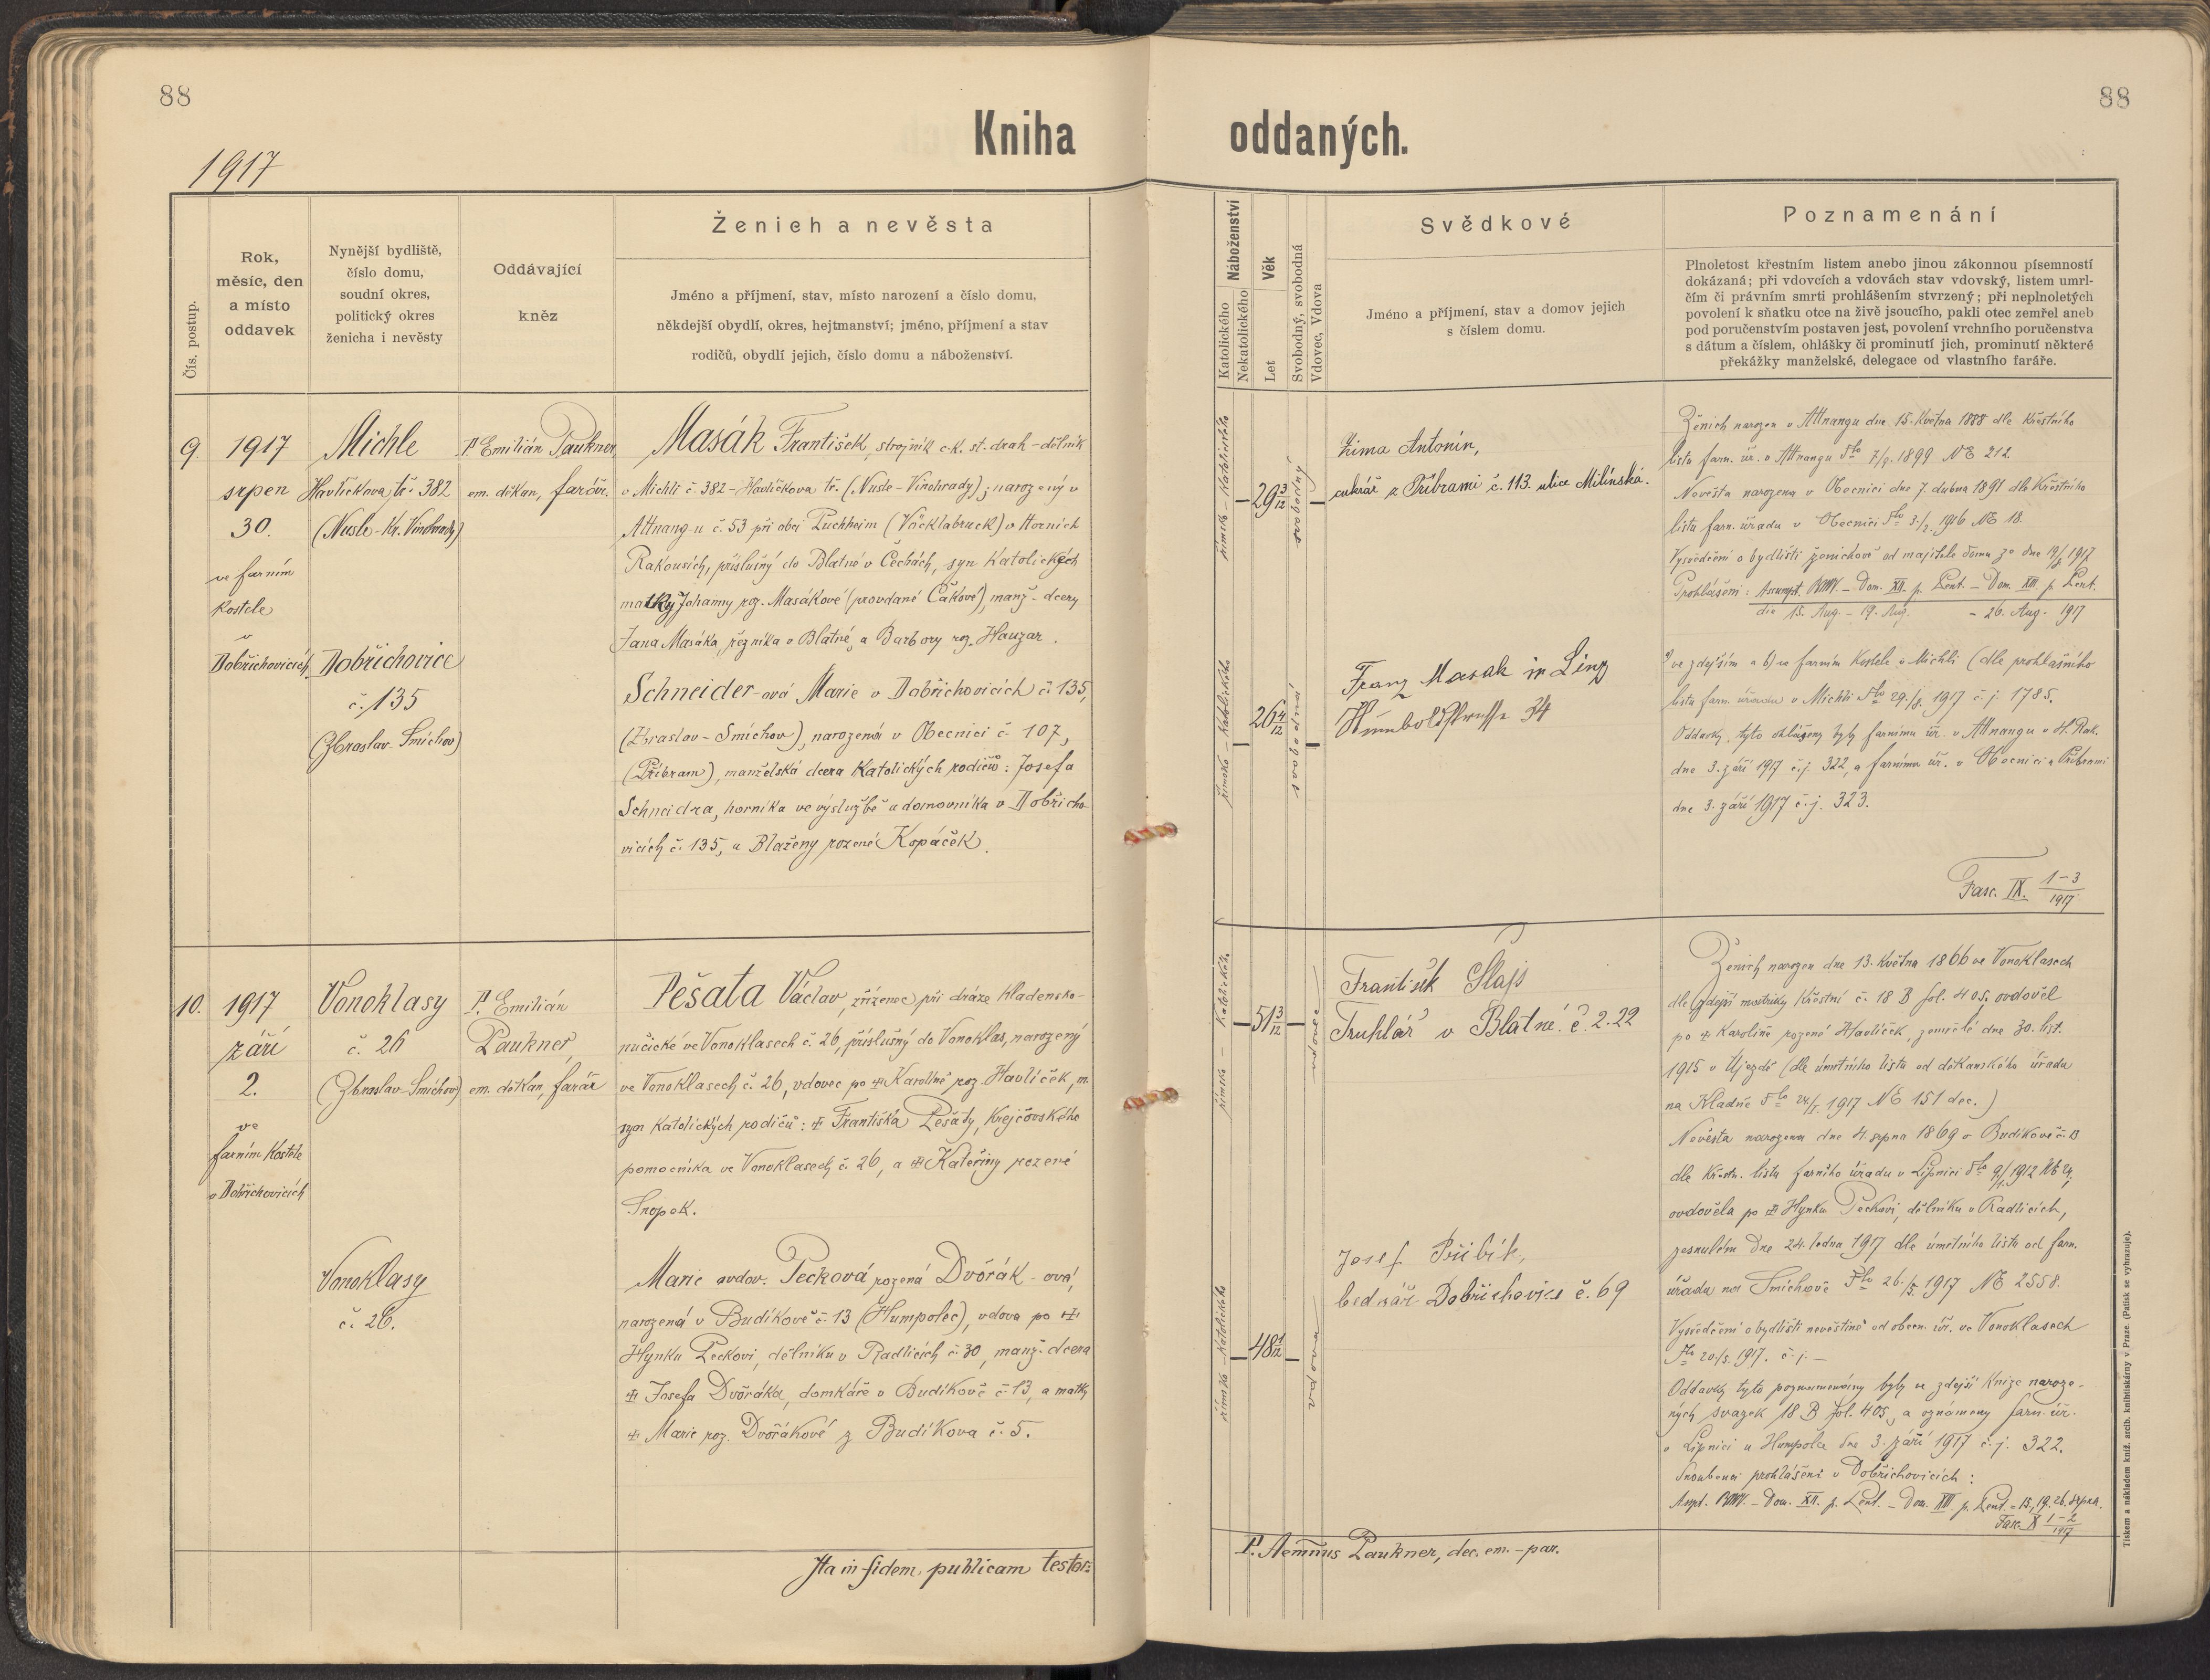 88
88
Kniha oddaných.
1917
Čís. postup.
Rok,
měsíc, den
a místo
oddavek
Nynější bydliště,
číslo domu,
soudní okres,
politický okres
ženicha i nevěsty
Oddávající
kněz
Ženich a nevěsta
Jméno a příjmení, stav, místo narození a číslo domu,
někdejší obydlí, okres, hejtmanství; jméno, příjmení a stav
rodičů, obydlí jejich, číslo domu a náboženství.
Náboženství
Katolického
Nekatolického
Věk
Let
Svobodný, svobodná
Vdovec, Vdova
Svědkové
Jméno a příjmení, stav a domov jejich
s číslem domu.
Poznamenání
Plnoletost křestním listem anebo jinou zákonnou písemností
dokázaná; při vdovcích a vdovách stav vdovský, listem umrl-
čím či právním smrti prohlášením stvrzený; při neplnoletých
povolení k sňatku otce na živě jsoucího, pakli otec zemřel aneb
pod poručenstvím postaven jest, povolení vrchního poručenstva
s dátum a číslem, ohlášky či prominutí jich, prominutí některé
překážky manželské, delegace od vlastního faráře.
9.
1917
srpen
30.
ve farním
kostele
v
Dobřichovicích
Michle
Havlíčkova tř. 382
(Nusle-Kr. Vinohrady)
Dobřichovice
č. 135
(Zbraslav-Smíchov)
P. Emilián Paukner,
em. děkan, farář.
Masák František, strojník c.k. st. drah-dělník
v Michli č. 382-Havlíčkova tř. (Nusle-Vinohrady); narozený v
Attnang-u č. 53 při obci Puchheim (Vöcklabruck) v Horních
Rakousích, příslušný do Blatné v Čechách, syn katolických
matky Johanny roz. Masákové (provdané Čákové), manž. dcery
Jana Masáka, řezníka v Blatné, a Barbory roz. Hauzar.
Schneider-ová Marie v Dobřichovicích č. 135,
(Zbraslav-Smíchov), narozená v Obecnici č. 107,
(Příbram), manželská dcera katolických rodičů: Josefa
Schneidra, horníka ve výslužbě a domovníka v Dobřicho-
vicích č. 135, a Blaženy rozené Kopáček.
římsko-katolického
29 3/12
svobodný
římsko-katolického
26 4/12
svobodná
Zima Antonín,
cukrář z Příbrami č. 113 ulice Milínská.
Franz Masak in Linz
Humboldstrasse 34
Ženich narozen v Attnangu dne 15. května 1888 dle křestního
listu farn. úř. v Attnangu dto 7/9. 1899 № 212.
Nevěsta narozena v Obecnici dne 7. dubna 1891 dle křestního
listu farn. úřadu v Obecnici dto 3./2. 1916 № 18.
Vysvědčení o bydlišti ženichově od majitele domu ze dne 19/8 1917
Prohlášení: Assumpt. BMV. - Dom. XII. p. Pent. - Dom. XIII. p. Pent.
die 15. Aug. - 19. Aug. - 26. Aug. 1917
a) ve zdejším a b) ve farním kostele v Michli (dle prohlašního
listu farn. úřadu v Michli dto 29./8. 1917 č. j. 1785.
Oddavky tyto ohlášeny byly farnímu úř. v Attnangu v H. Rak.
dne 3. září 1917 č. j. 322, a farnímu úř. v Obecnici u Příbrami
dne 3. září 1917 č. j. 323.
Fasc. IX. 1-3/1917
10.
1917
září
2.
ve
farním kostele
v Dobřichovicích
Vonoklasy
č. 26
(Zbraslav-Smíchov)
Vonoklasy
č. 26.
P. Emilián
Paukner,
em. děkan, farář
Pešata Václav, zřízenec při dráze kladensko-
nučické ve Vonoklasech č. 26, příslušný do Vonoklas, narozený
ve Vonoklasech č. 26, vdovec po ‡ Karolíně roz. Havlíček, m.
syn katolických rodičů: ‡ Františka Pešaty, krejčovského
pomocníka ve Vonoklasech č. 26, a ‡ Kateřiny rozené
Snopek.
Marie ovdov. Pecková rozená Dvořák-ová,
narozená v Budíkově č. 13 (Humpolec), vdova po ‡
Hynku Peckovi, dělníku v Radlicích č. 30, manž. dcera
‡ Josefa Dvořáka, domkáře v Budíkově č. 13, a matky
‡ Marie roz. Dvořákové z Budíkova č. 5.
římsko - katolické.
51 3/12
vdovec
římsko-katolického
48 1/12
vdova
František Šlajs
Truhlář v Blatné. č. 2.22
Josef Přibík,
bednář Dobřichovice č. 69
Ženich narozen dne 13. května 1866 ve Vonoklasech
dle zdejší matriky křestní č. 18 B fol. 405, ovdověl
po ‡ Karolíně rozené Havlíček, zemřelé dne 30. list.
1915 v Újezdě (dle úmrtního listu od děkanského úřadu
na Kladně dto 24/1. 1917 № 151 dec.)
Nevěsta narozena dne 4. srpna 1869 v Budíkově č. 13
dle křestn. listu farního úřadu v Lipnici dto 9/1. 1912 № 24,
ovdověla po ‡ Hynku Peckovi, dělníku v Radlicích,
zesnulém dne 24. ledna 1917 dle úmrtního listu od farn.
úřadu na Smíchově dto 26./5. 1917 № 2558.
Vysvědčení o bydlišti nevěstině od obecn. úř. ve Vonoklasech
dto 20./5. 1917. č. j. -
Oddavky tyto poznamenány byly ve zdejší knize naroze-
ných svazek 18 B fol. 405, a oznámeny farn. úř.
v Lipnici u Humpolce dne 3. září 1917 č. j. 322.
Snoubenci prohlášeni v Dobřichovicích:
Aspt. BMV. - Dom. XII. p. Pent. - Dom. XIII p. Pent. = 15, 19, 26. srpna.
Fasc. X 1-2/1917
Ita in fidem publicam testor:
P. Aemilius Paukner, dec. em. - par.
Tiskem a nákladem kníž. arcib. knihtiskárny v Praze. (Patisk se vyhrazuje).